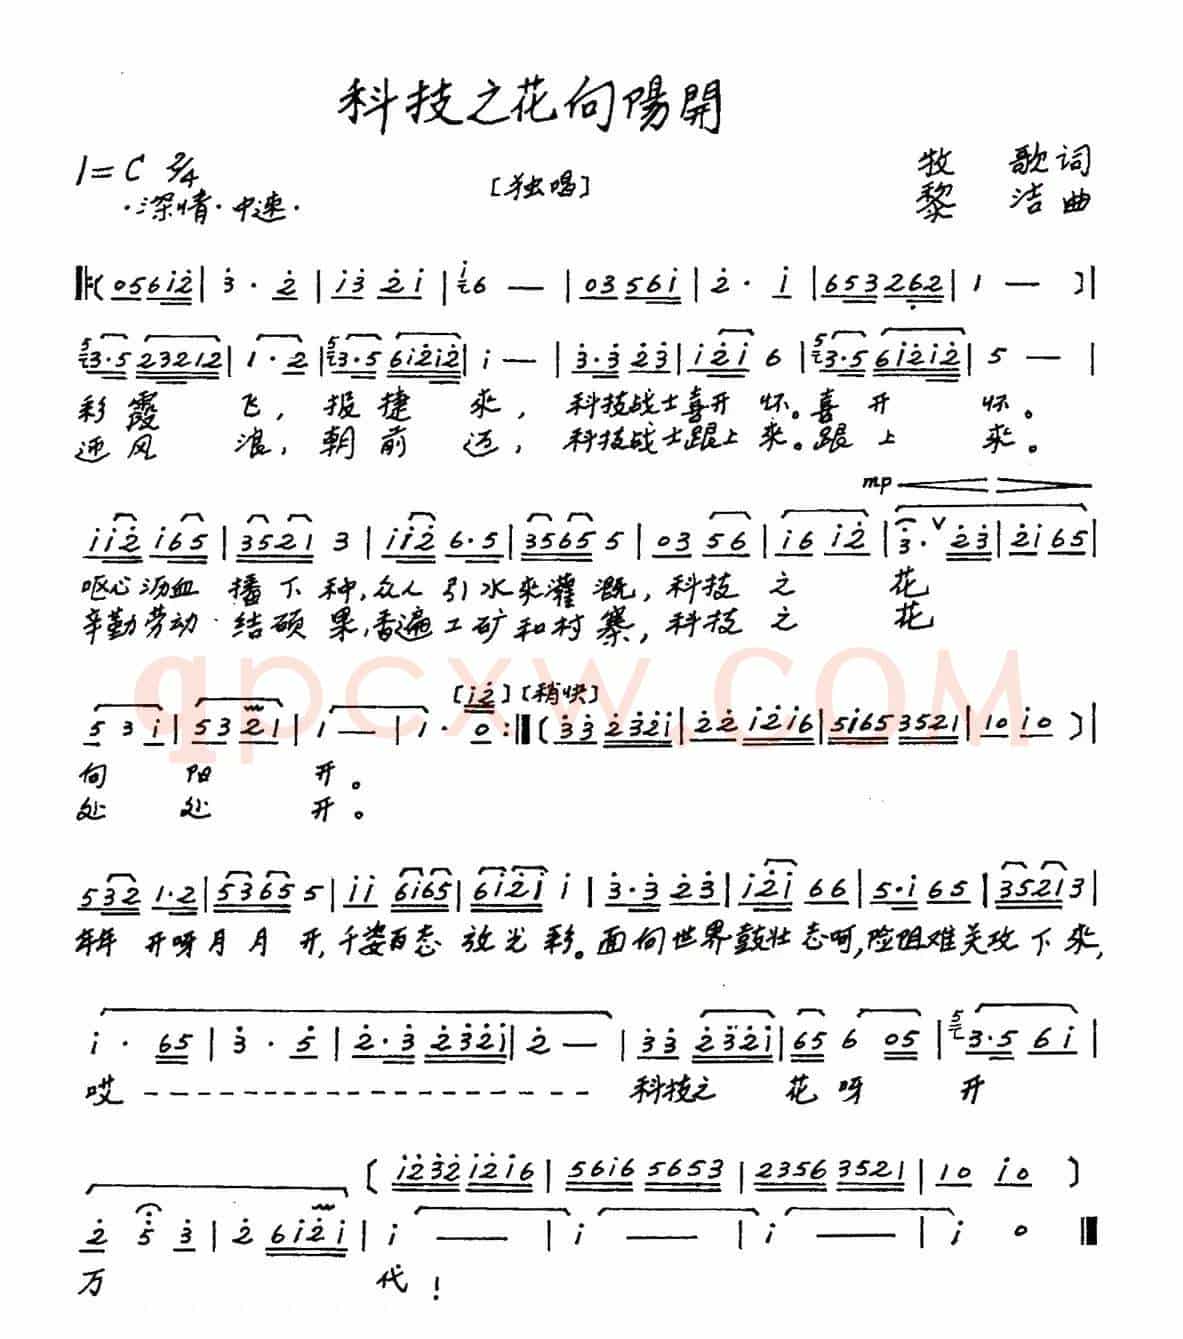 科技之花向陽開
1=C 2/4
[独唱]
牧 歌词
·深情·中速·
黎 洁曲
‖:(056i2|3·2|i3 2i|6—|03 56i|2·i|653262|1—)|
3·5 23212|1·2|3·5 6i2i2|i—|3·3 23|i2i 6|3·5 6i2i2|5—|
彩霞 飞，报捷 来，科技战士喜开 怀。喜开 怀。
迎风 浪，朝前 迈，科技战士跟上 来。跟上 来。
mp
ii2 i65|3521 3|ii2 6·5|3565 5|03 56|i6 i2|3·∨23|2i65|
呕心沥血 播下种，众人引水来灌溉，科技之 花
辛勤劳动·结硕果，香遍工矿和村寨，科技之 花
qpcxw.COM
[i2][稍快]
5 3 i|5321|1—|1·0:‖(33 232i|22 i2i6|5i65 3521|10 i0)|
向 阳 开。
处 处 开。
532 1·2|5365 5|ii 6i65|6i2i i|3·3 23|i2i 66|5·i 65|3521 3|
年年 开呀月月开，千姿百态放光彩。面向世界鼓壮志呵，险阻难关攻下来，
i·65|3·5|2·3 232i|2—|33 232i|65 6 05|3·5 6i|
哎 科技之 花呀 开
(i232 i2i6|56i6 5653|2356 3521|10 i0)
2 5 3|2 6i2i|i—|i—|i—|i 0‖
万 代！